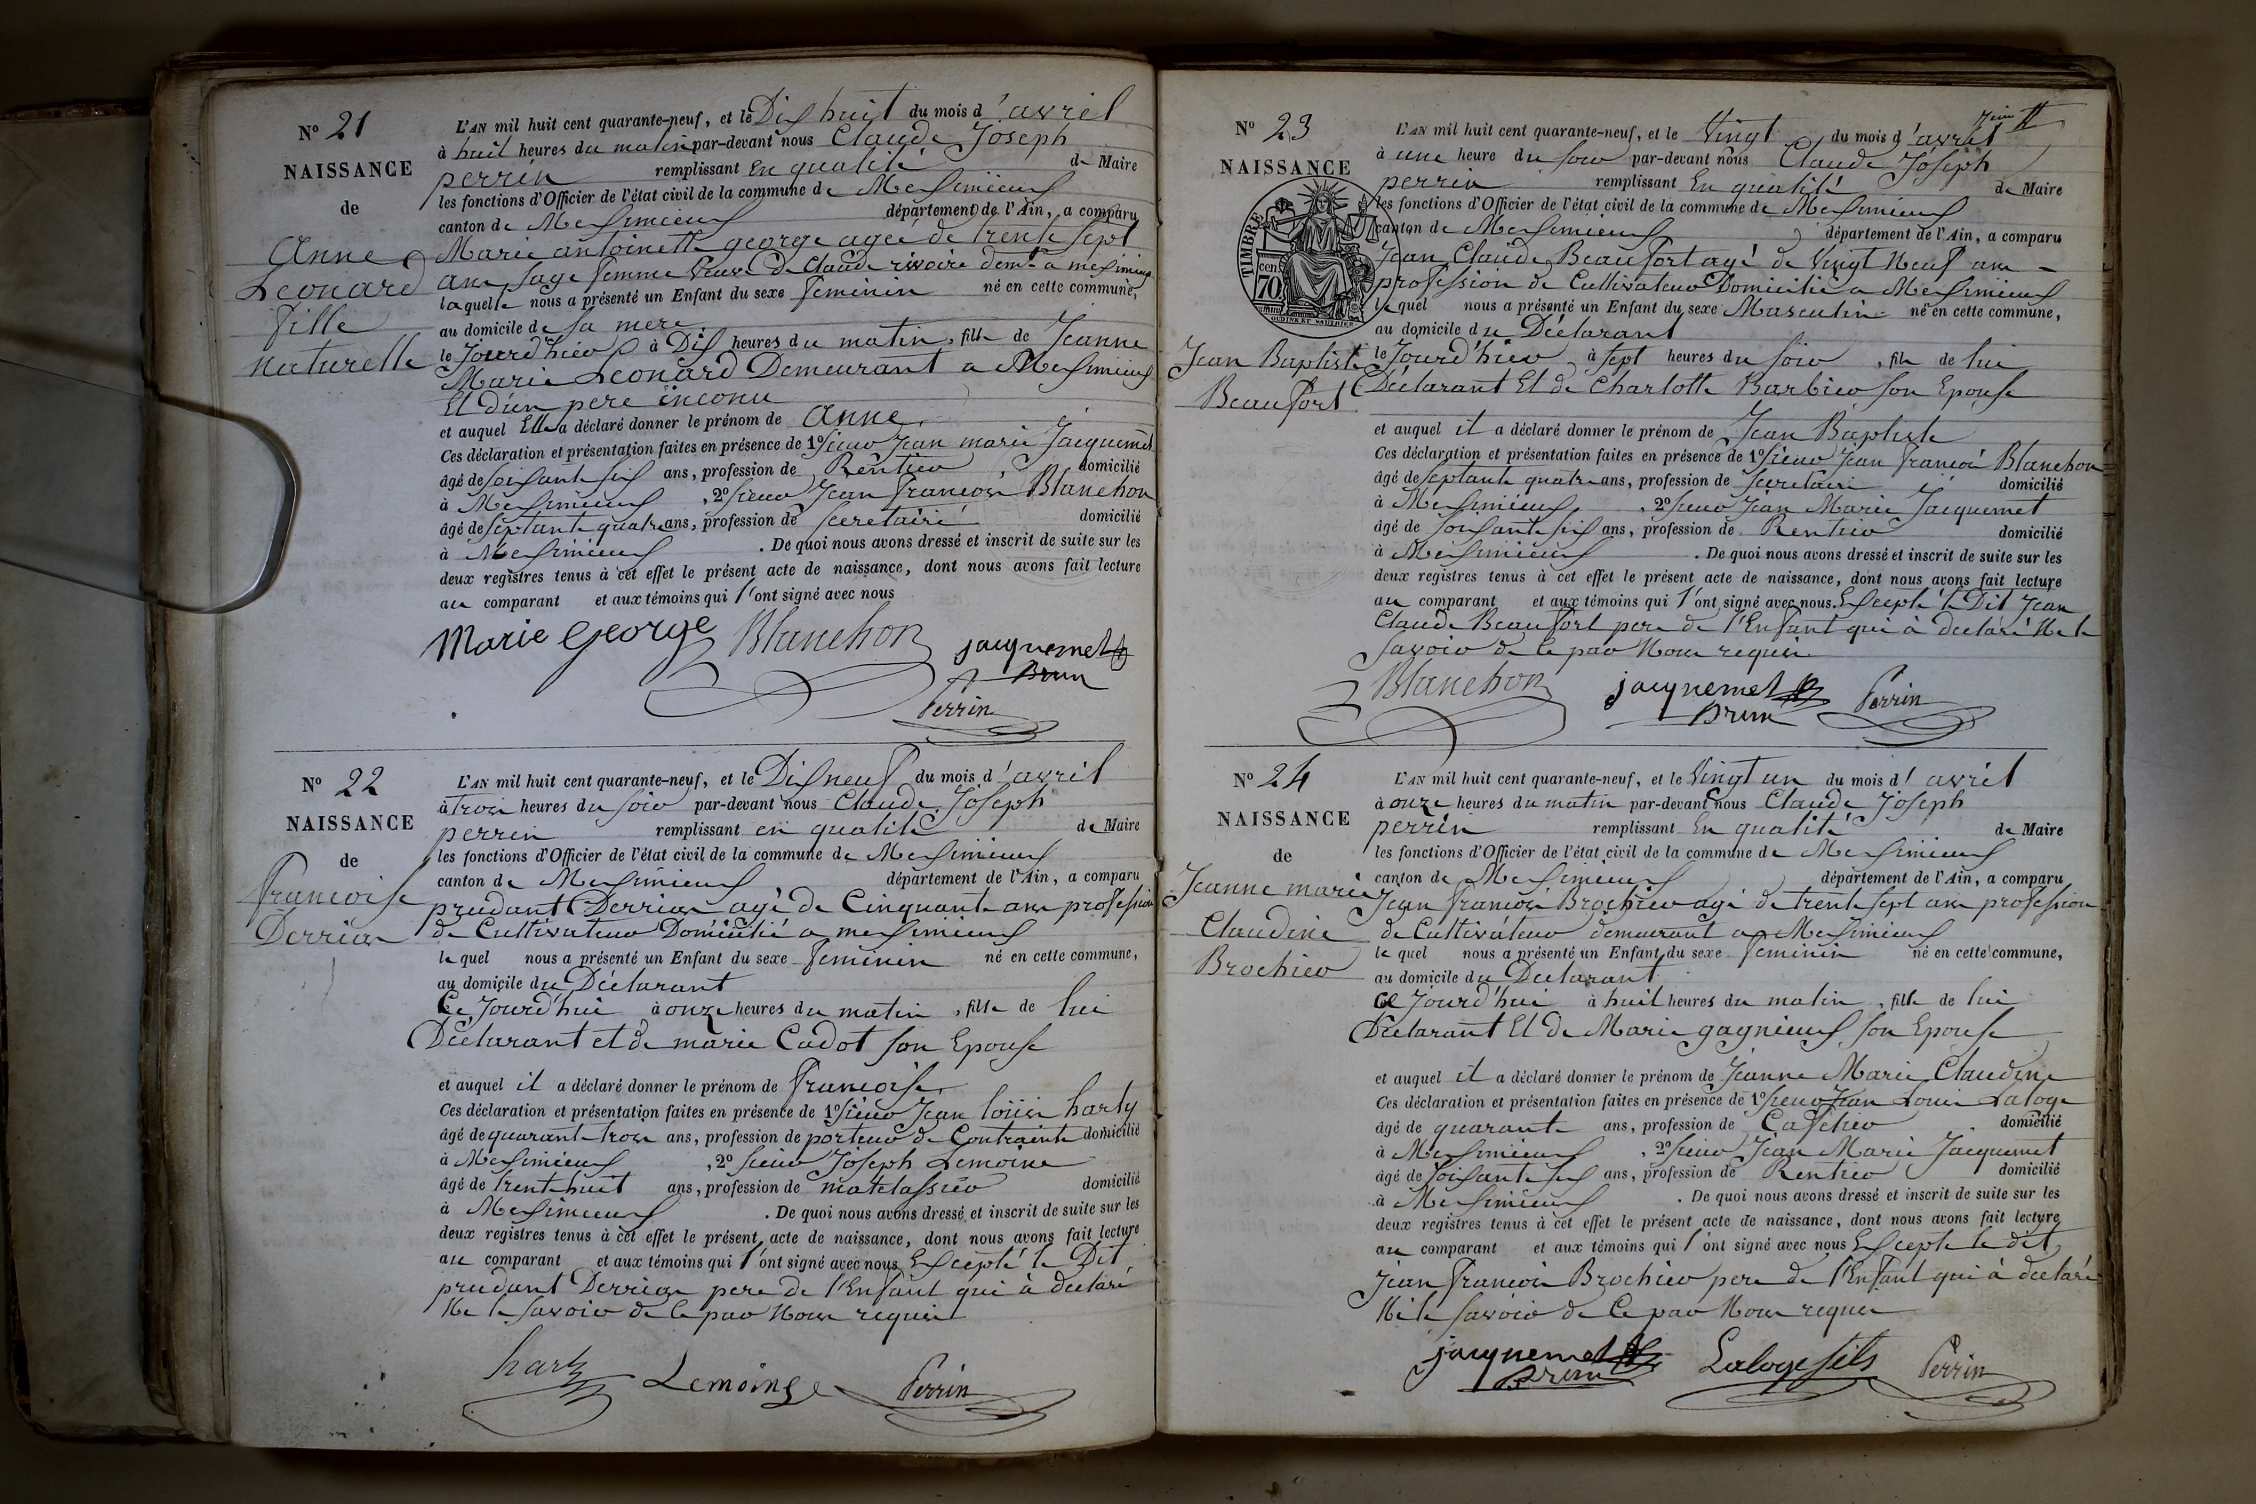 N° 21
NAISSANCE
de
Anne
Leonard
fille
naturelle
L'AN mil huit cent quarante-neuf, et le Dix huit du mois d'avril
à huit heures du matin par-devant nous Claude Joseph
perrin remplissant En qualité de Maire
les fonctions d'Officier de l'état civil de la commune de Meximieux
canton de Meximieux département de l'Ain, a comparu
Marie antoinette george agée de trente sept
ans sage femme veuve de Claude rivoire demt a meximieux
laquelle nous a présenté un Enfant du sexe feminin né en cette commune,
au domicile de sa mere
le Jourd'hier à Dix heures du matin, fille de Jeanne
Marie Leonard Demeurant a Meximieux
Et d'un pere inconu
et auquel Elle a déclaré donner le prénom de Anne
Ces déclaration et présentation faites en présence de 1° sieur Jean marie Jacquemet
âgé de soixante six ans, profession de Rentier, domicilié
à Meximieux, 2° sieur Jean francois Blanchon
âgé de septante quatre ans, profession de secretaire domicilié
à Meximieux. De quoi nous avons dressé et inscrit de suite sur les
deux registres tenus à cet effet le présent acte de naissance, dont nous avons fait lecture
au comparant et aux témoins qui l'ont signé avec nous
Marie George Blanchon jacquemet
Brun
Perrin
N° 22
NAISSANCE
de
francoise
Derrias
L'AN mil huit cent quarante-neuf, et le Dix neuf du mois d'avril
à trois heures du soir par-devant nous Claude Joseph
perrin remplissant en qualité de Maire
les fonctions d'Officier de l'état civil de la commune de Meximieux
canton de Meximieux département de l'Ain, a comparu
prudant Derrias agé de Cinquante ans profession
de Cultivateur Domicilié a meximieux
le quel nous a présenté un Enfant du sexe feminin né en cette commune,
au domicile du Déclarant
Ce Jourd'hui à onze heures du matin, fille de lui
Déclarant et de marie Cadot son Epouse
et auquel il a déclaré donner le prénom de francoise
Ces déclaration et présentation faites en présence de 1° sieur Jean louis harty
âgé de quarante trois ans, profession de porteur de Contrainte domicilié
à Meximieux, 2° sieur Joseph Lemoine
âgé de trente huit ans, profession de matelassier domicilié
à Meximieux. De quoi nous avons dressé et inscrit de suite sur les
deux registres tenus à cet effet le présent acte de naissance, dont nous avons fait lecture
au comparant et aux témoins qui l'ont signé avec nous Excepté le Dit
prudant Derrias pere de l'Enfant qui à declaré
Ne le savoir de ce par Nous requis
Lemoine Perrin
N° 23
NAISSANCE
TIMBRE
70
Jean Baptiste
Beaufort
L'AN mil huit cent quarante-neuf, et le Vingt du mois d'avril
à une heure du soir par-devant nous Claude Joseph
perrin remplissant En qualité de Maire
les fonctions d'Officier de l'état civil de la commune de Meximieux
canton de Meximieux département de l'Ain, a comparu
Jean Claude Beaufort agé de Vingt Neuf ans
profession de Cultivateur Domicilié a Meximieux
le quel nous a présenté un Enfant du sexe Masculin né en cette commune,
au domicile du Déclarant
le Jourd'hier à sept heures du soir, fils de lui
Déclarant Et de Charlotte Barbier son Epouse
et auquel il a déclaré donner le prénom de Jean Baptiste
Ces déclaration et présentation faites en présence de 1° sieur Jean francois Blanchon
âgé de septante quatre ans, profession de secretaire domicilié
à Meximieux, 2° sieur Jean Marie Jacquemet
âgé de soixante six ans, profession de Rentier domicilié
à Meximieux. De quoi nous avons dressé et inscrit de suite sur les
deux registres tenus à cet effet le présent acte de naissance, dont nous avons fait lecture
au comparant et aux témoins qui l'ont signé avec nous Excepté le Dit Jean
Claude Beaufort pere de l'Enfant qui à declaré Ne le
savoir de ce par Nous requis
Blanchon jacquemet Perrin
Brun
N° 24
NAISSANCE
de
Jeanne marie
Claudine
Brochier
L'AN mil huit cent quarante-neuf, et le Vingt un du mois d'avril
à onze heures du matin par-devant nous Claude Joseph
perrin remplissant En qualité de Maire
les fonctions d'Officier de l'état civil de la commune de Meximieux
canton de Meximieux département de l'Ain, a comparu
Jean francois Brochier agé de trente sept ans profession
de Cultivateur demeurant a Meximieux
le quel nous a présenté un Enfant du sexe feminin né en cette commune,
au domicile du Declarant
Ce Jourd'hui à huit heures du matin, fille de lui
Déclarant Et de Marie gagnieux son Epouse
et auquel il a déclaré donner le prénom de Jeanne Marie Claudine
Ces déclaration et présentation faites en présence de 1° sieur Jean Louis Laloge
âgé de quarante ans, profession de Cafetier domicilié
à Meximieux, 2° sieur Jean Marie Jacquemet
âgé de soixante six ans, profession de Rentier domicilié
à Meximieux. De quoi nous avons dressé et inscrit de suite sur les
deux registres tenus à cet effet le présent acte de naissance, dont nous avons fait lecture
au comparant et aux témoins qui l'ont signé avec nous Excepté le dit
Jean francois Brochier pere de l'Enfant qui à declaré
Ne le savoir de Ce par Nous requis
jacquemet Laloge fils Perrin
Brun